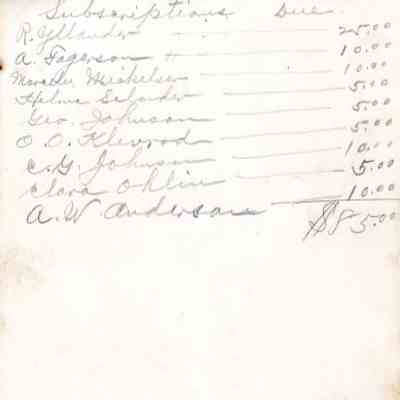 Subscriptions Due
R. Yllander 25.00
A. Fagerson 10.00
Marcelee Mickelsen 10.00
Thelma Selander 5.00
Geo. Johnson 5.00
O. O. Klevrod 5.00
C. G. Johnson 10.00
Clara Ohlin 5.00
A. W. Anderson 10.00
$85.00